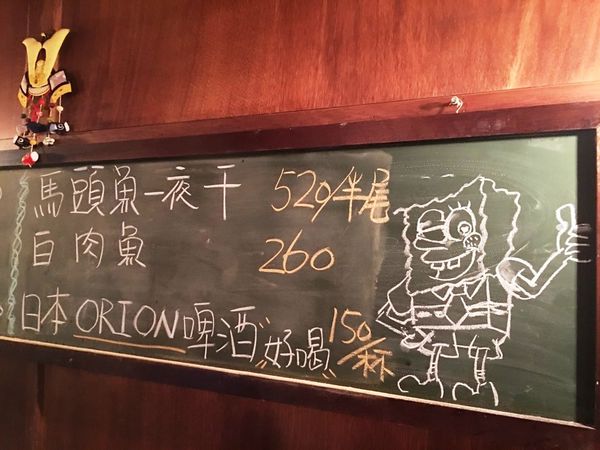 馬頭魚一夜干 520/半尾
白肉魚 260
日本ORION啤酒"好喝"150/杯